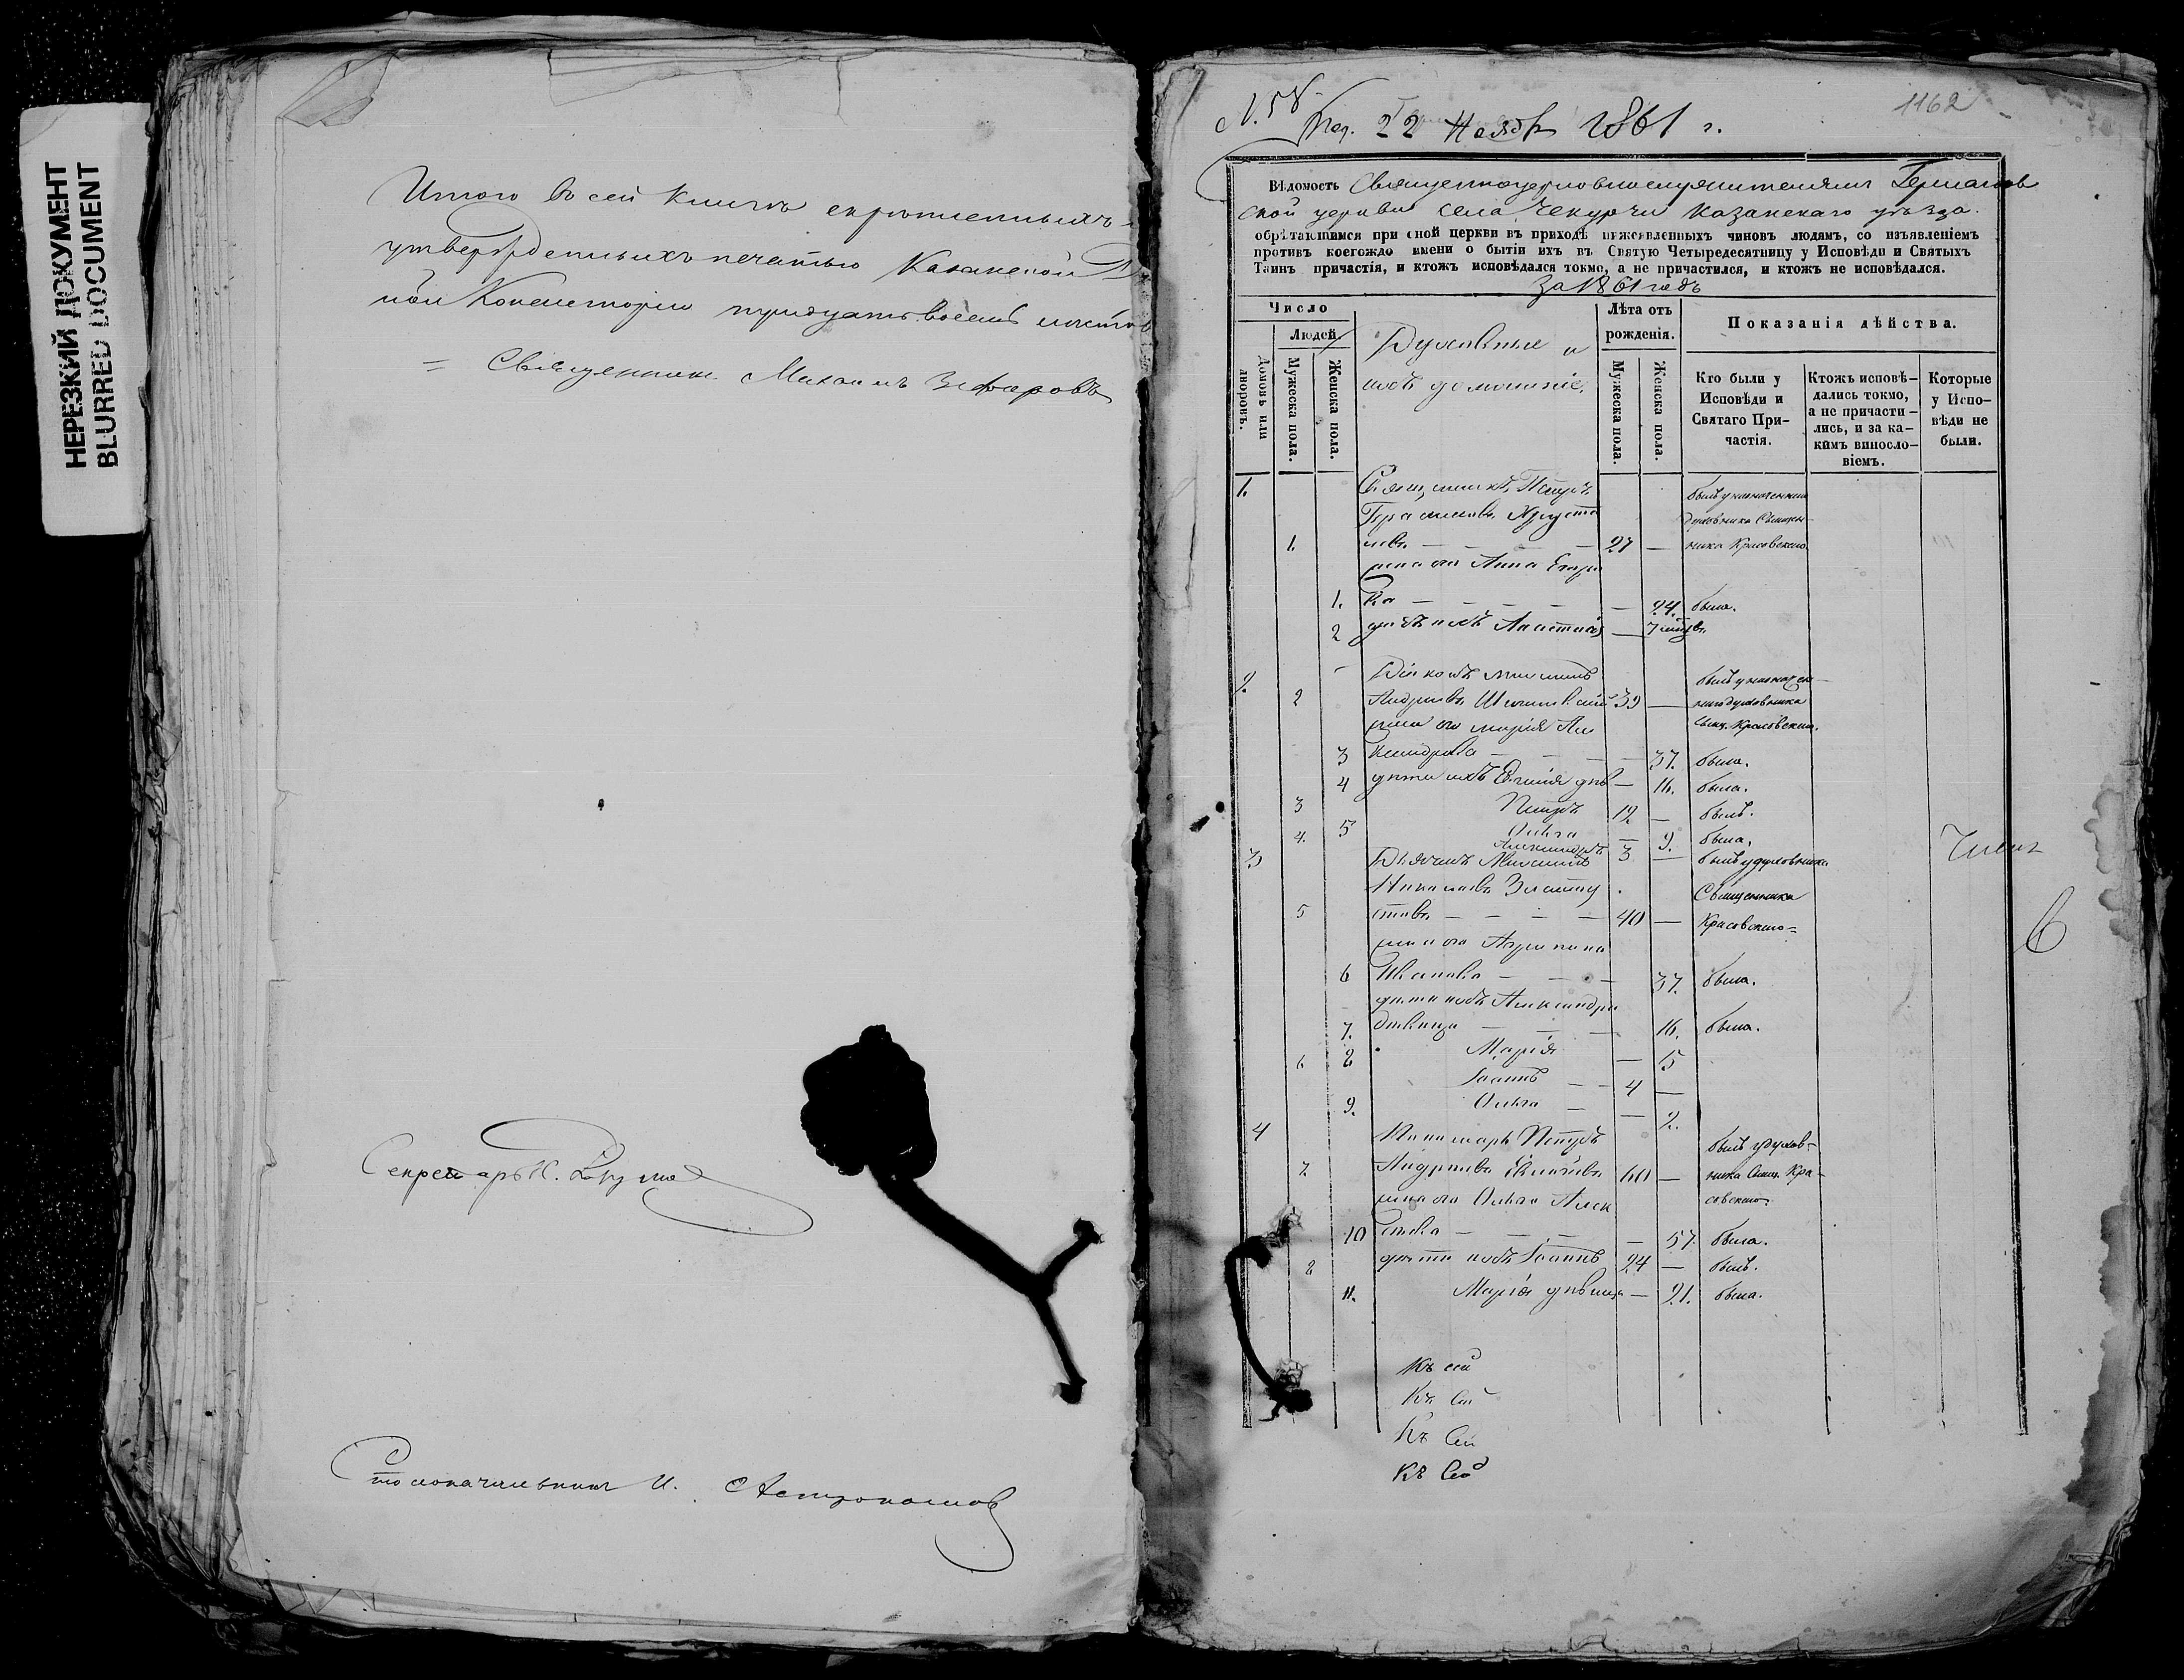 НЕРЕЗКИЙ ДОКУМЕНТ
BLURRED DOCUMENT
Итого въ сей книгѣ скрѣпленныхъ
утвержденныхъ печатью Казанской
ной Консисторіи тридцать восемь листовъ
= Священникъ Михаилъ Зефировъ
Секретарь К.
Столоначальникъ И. Астрономовъ
1162
N. 58
Пол. 22 Ноябр 1861 г.
Вѣдомость Священноцерковнослужителямъ Германов
ской церкви села Чекурчи Казанскаго уѣзда.
обрѣтающимся при оной церкви въ приходѣ нижеявленныхъ чиновъ людямъ, со изъявленіемъ
противъ коегождо имени о бытіи ихъ въ Святую Четыредесятницу у Исповѣди и Святыхъ
Таинъ причастія, и ктожъ исповѣдался токмо, а не причастился, и ктожъ не исповѣдался.
За 1861 годъ
Число
Людей
Домовъ или дворовъ.
Мужеска пола.
Женска пола.
Духовные и
ихъ домашніе.
Лѣта отъ рожденія.
Мужеска пола.
Женска пола.
Показанія дѣйства.
Кто были у Исповѣди и Святаго Причастія.
Ктожъ исповѣ-
дались токмо,
а не причасти-
лись, и за ка-
кимъ винosло-
віемъ.
Которые
у Испо-
вѣди не
были.
1. Священникъ Петръ
Герасимовъ
1. 27 — ника Красовскаго
жена его Анна Егоро
1. ва — 24. была.
2 дочь ихъ Анастасія —
2. Діаконъ Михаилъ
2 Андреевъ 39 — наго духовника
жена его Марія Але Свящ. Красовскаго.
3 ксандрова — 37. была.
4 дѣти ихъ — 16. была.
3 Петръ 12 — былъ.
5 Ольга — 9. была.
4. Александръ 3 —
3 Дьячекъ Михаилъ былъ у духовника
Николаевъ Златоу Священника
5 стовъ 40 — Красовскаго =
жена его Агрипина
6 Иванова — 37. была.
дѣти ихъ Александра
7. дѣвица — 16. была.
8 Марія — 15
6 Іоаннъ — 4 —
9. Ольга — 2.
4 Пономарь Петръ былъ у духов-
7. Андреевъ 60 — ника Свящ. Кра-
жена его Ольга Алек совскаго
10 сѣева — 57. была.
8 дѣти ихъ Іоаннъ 24 — былъ.
11. Марія дѣвица — 21. была.
Къ сей
Къ сей
Къ сей
Къ сей